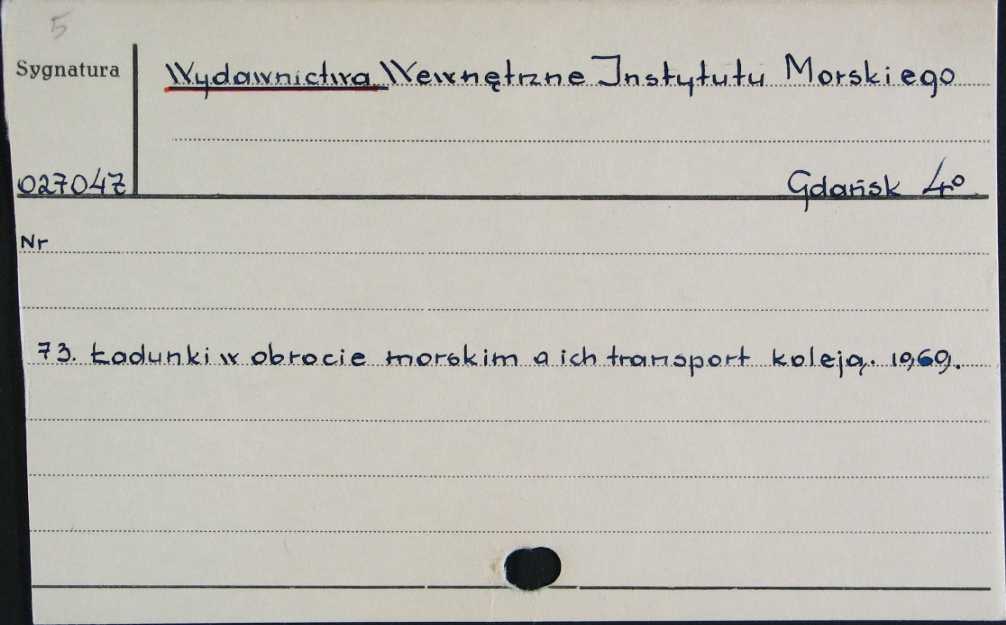 5
Sygnatura Wydawnictwa Wewnętrzne Instytutu Morskiego
027047 Gdańsk 4°
Nr
73. Ładunki w obrocie morskim a ich transport koleją. 1969.